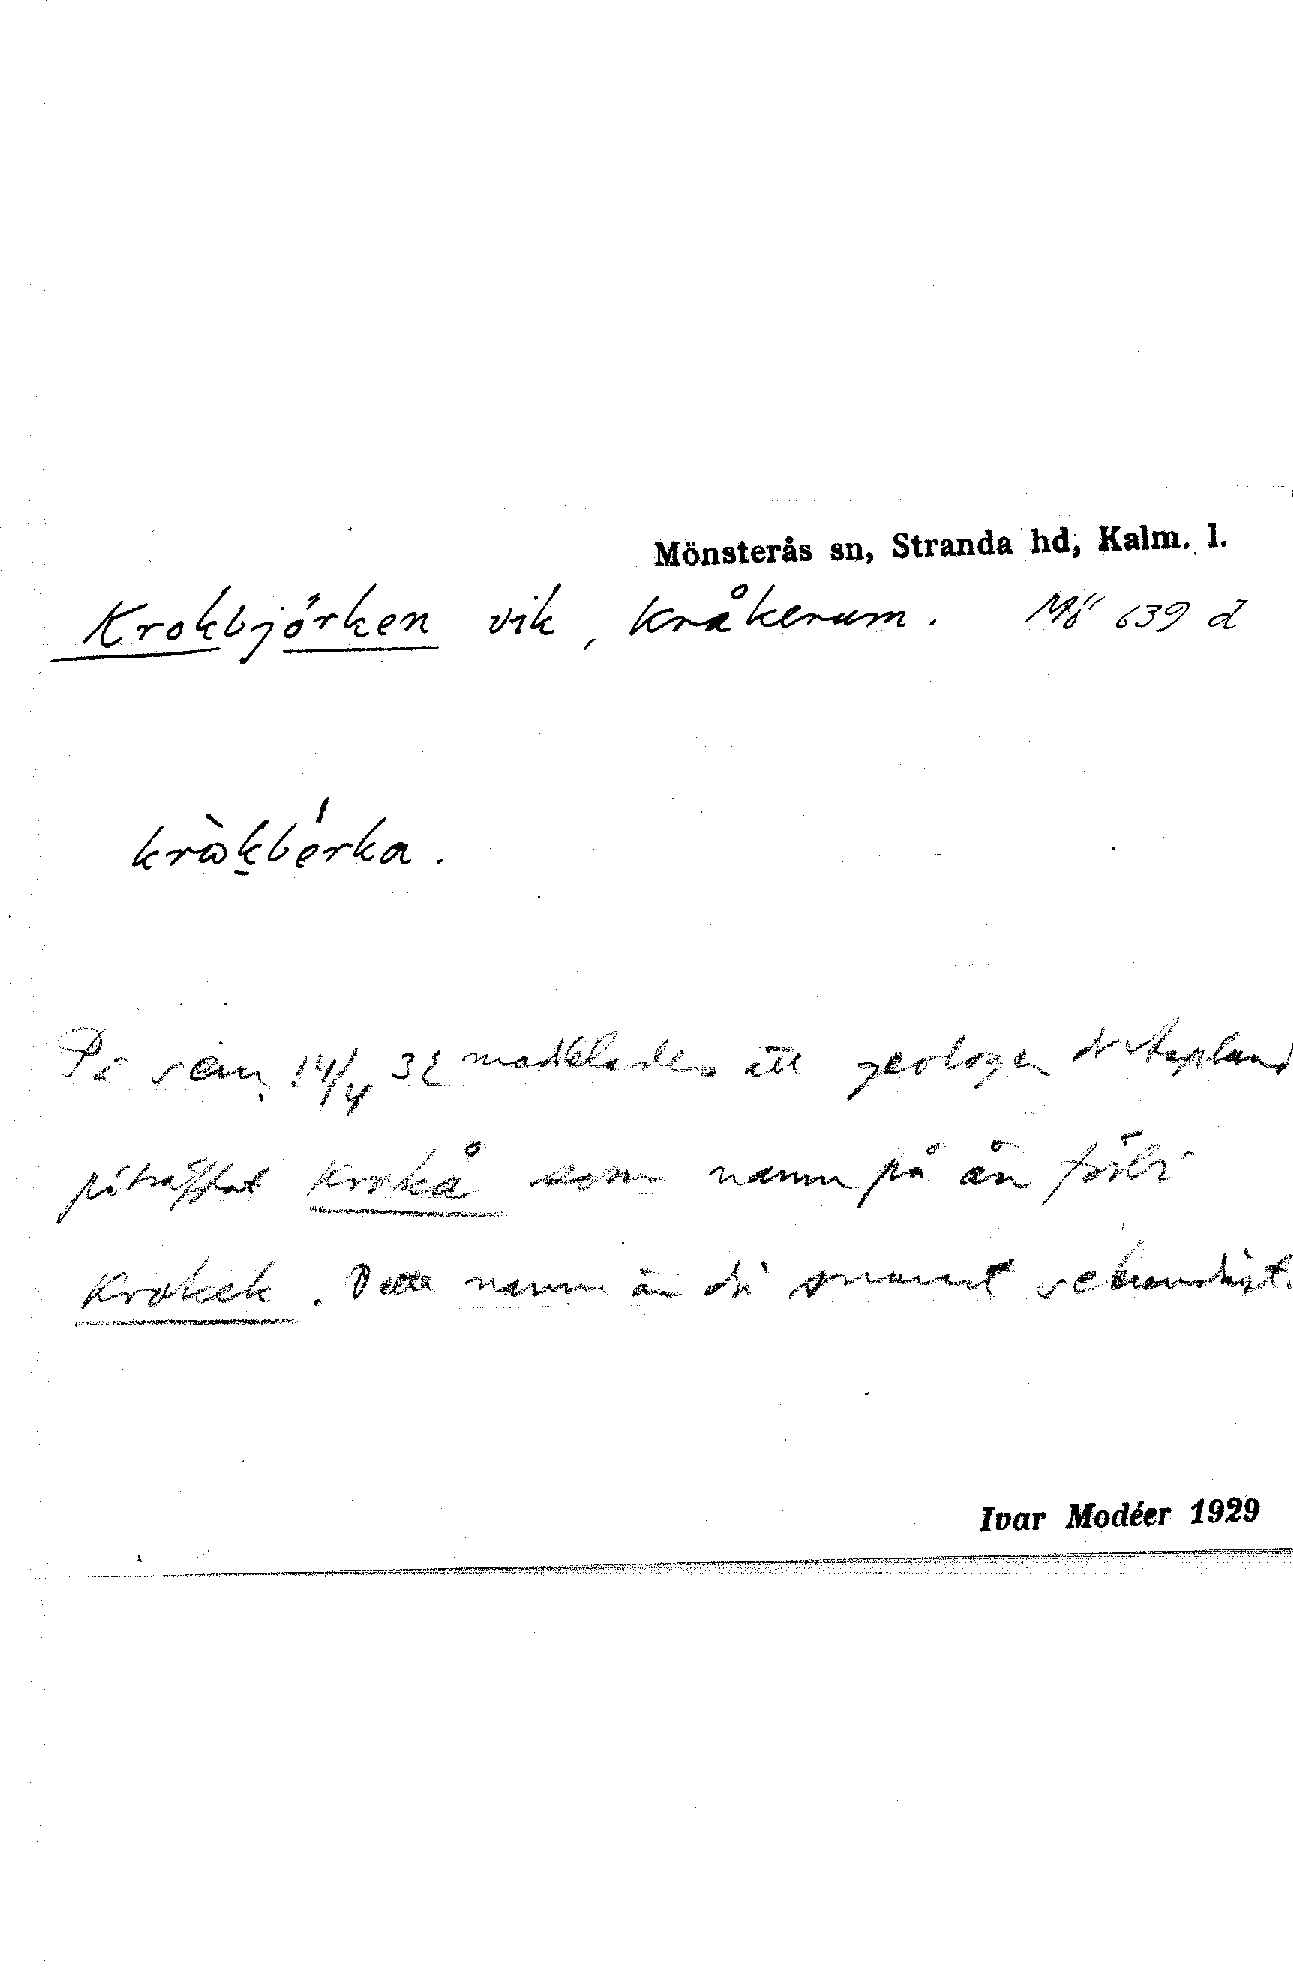 Mönsterås sn, Stranda hd, Kalm. l.
Krokbjörken vik, Kråkerum. Mö 639 d
kròkbérka.
På sem. 14/4 32 meddelades att geologen dr Asplund
påträffat Krokå som namn på ån förbi
Krokek. Detta namn är då snarast sekundärt.
Ivar Modéer 1929